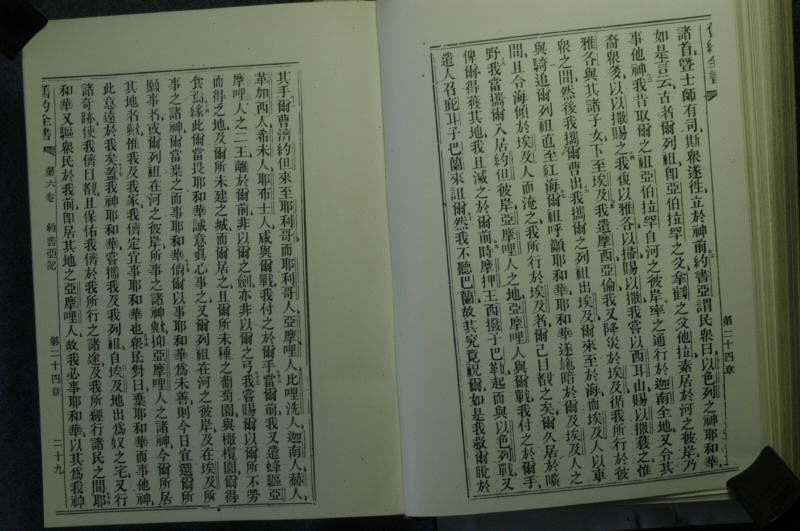 舊約全書
第二十四章
諸首暨士師有司斯衆遂往立於神前約書亞謂民衆曰以色列之神耶和華
如是言云古者爾列祖卽亞伯拉罕之父拿鶴之父他拉素居於河之彼岸乃
事他神我昔取爾之祖亞伯拉罕自河之彼岸率之通行於迦南全地又令其
裔衆多以以撒賜之我復以雅各以掃賜以撒我嘗以西耳山賜以掃獲之惟
雅各與其諸子女下至埃及我遣摩西亞倫我又降災於埃及循我所行於彼
衆之間然後我攜爾曹出我攜爾之列祖出埃及爾來至於海而埃及人以車
與騎追爾列祖直至紅海爾祖呼籲耶和華耶和華遂施暗於爾及埃及人之
間且令海傾於埃及人而淹之我所行於埃及者爾已目覩之矣爾久居於曠
野我當攜爾入居約但彼岸亞摩哩人之地亞摩哩人與爾戰我付之於爾手
俾爾得獲其地我且滅之於爾前時摩押王西撥子巴勒起而與以色列戰又
遣人召庇耳子巴蘭來詛爾然我不聽巴蘭故其究竟祝爾如是我救爾脫於
其手爾曹濟約但來至耶利哥而耶利哥人亞摩哩人比哩洗人迦南人赫人
革加西人希未人耶布士人咸與爾戰我付之於爾手當爾前我又遣蜂驅亞
摩哩人之二王離於爾前非以爾之劍亦非以爾之弓我嘗賜爾以爾所不勞
而得之地及爾所未建之城而爾居之且爾所未種之葡萄園與橄欖園爾得
食焉緣此爾當畏耶和華誠意眞心事之又爾列祖在河之彼岸及在埃及所
事之諸神爾當棄之而事耶和華倘爾以事耶和華爲未善則今日宜選爾所
願事者或爾列祖在河之彼岸所事之諸神與抑亞摩哩人之諸神今爾所居
其地者歟惟我及我家我儕定宜事耶和華也衆民對曰棄耶和華而事他神
此意遠於我矣蓋我神耶和華嘗攜我及我列祖自埃及地出爲奴之宅又行
諸奇跡使我儕目覩且保佑我儕於我所行之諸途及我所經行諸民之間耶
和華又驅衆民於我前卽居其地之亞摩哩人故我必事耶和華以其爲我神
舊約全書 第六卷 約書亞記 第二十四章 二十九